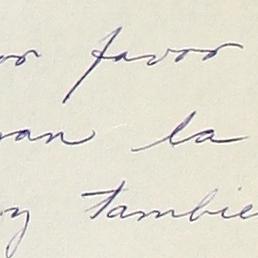 or favor
an la
y tambie